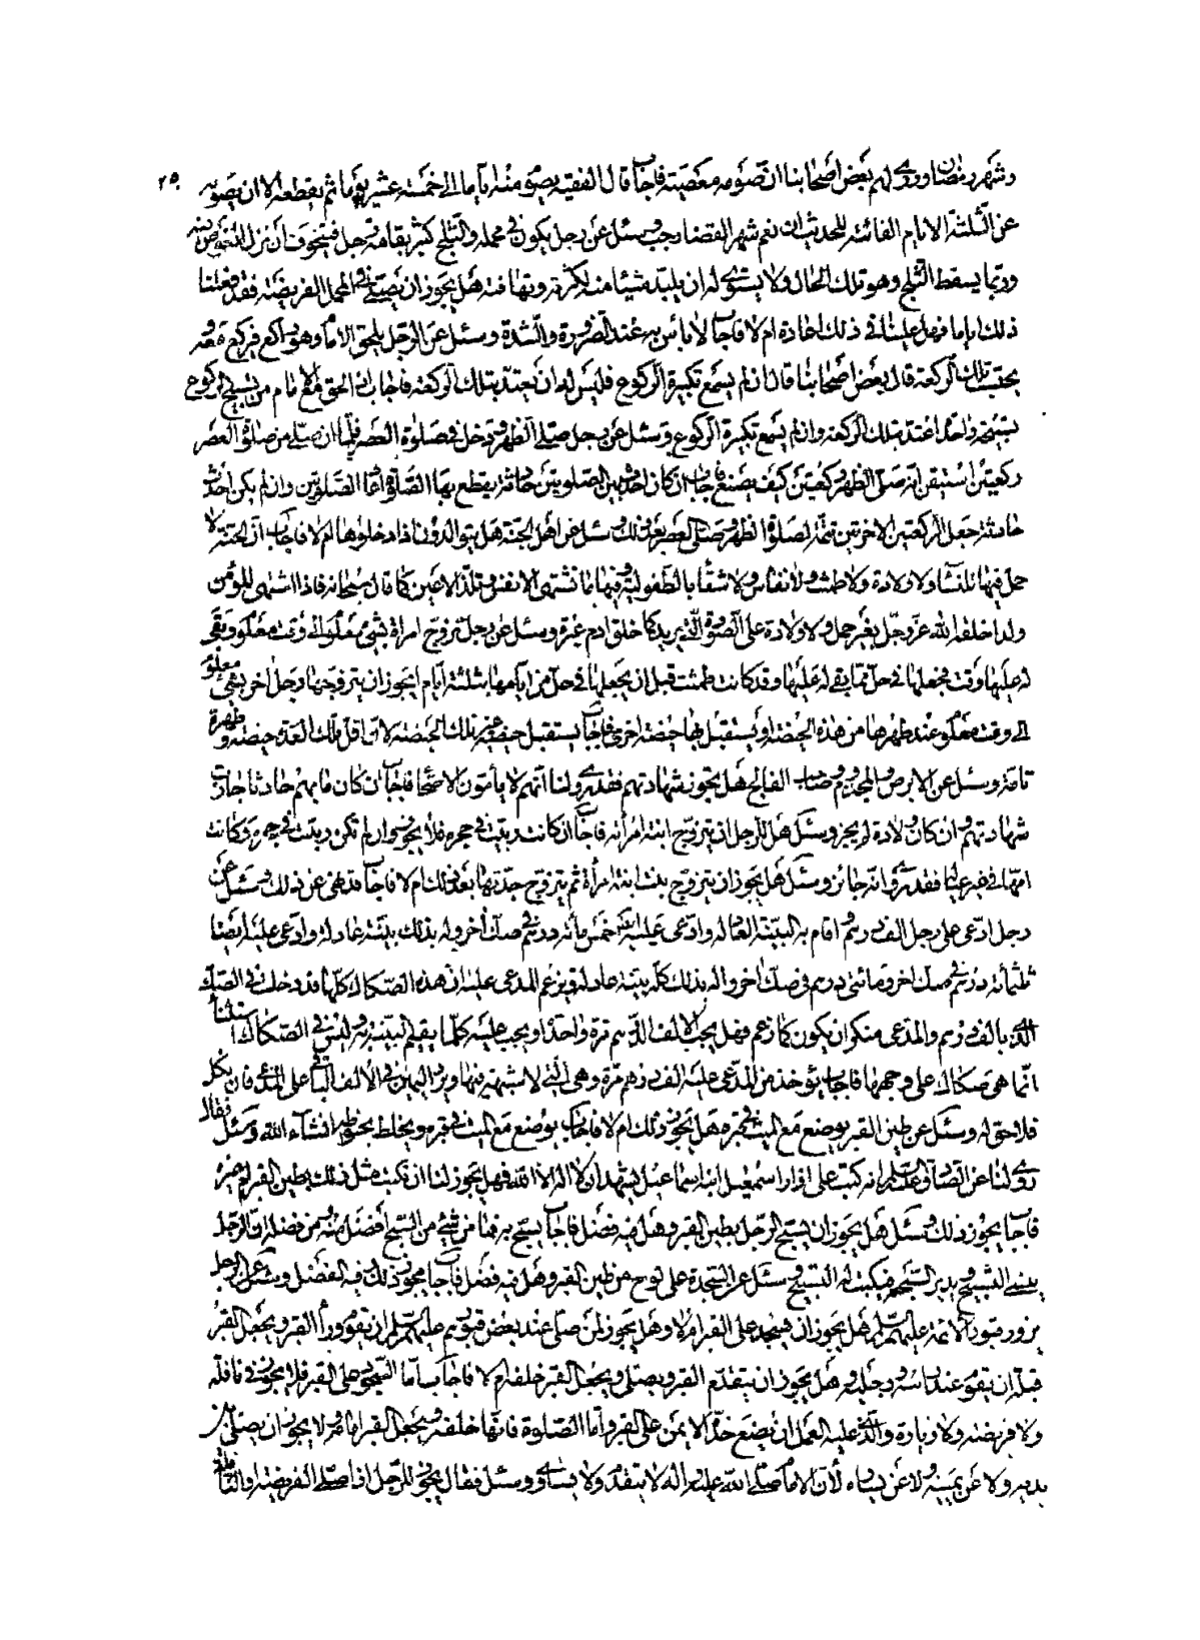 وشهر رمضان وروى لهم بعض اصحابنا ان صومه معصية فاجاب قال الفقيه يصوم منه اياما الى خمسة عشر يوما ثم يقطعه الا ان يصومه
عن الثلثة الايام الفائتة للحديث ان نعم شهر القضا رجب وسئل عن رجل يكون في محمله والثلج كثير بقامة رجل فيتخوف ان نزل الغوص فيه
وربما يسقط الثلج وهو تلك الحال ولا يستوى له ان يلبد شيئا منه لكثرته وتهافته هل يجوز ان يصلى في المحمل الفريضة فقد فعلنا
ذلك اياما فهل علينا في ذلك اعادة ام لا فاجاب لا باس به عند الضرورة والشدة وسئل عن الرجل يلحق الامام وهو راكع فيركع معه
يحتسب تلك الركعة قال بعض اصحابنا قال ان لم يسمع تكبيرة الركوع فليس له ان يعتد بتلك الركعة فاجاب اذا لحق مع الامام من تسبيح الركوع
تسبيحة واحدة اعتد بتلك الركعة وان لم يسمع تكبيرة الركوع وسئل عن رجل صلى الظهر ودخل في صلوة العصر فلما ان صلى من صلوة العصر
ركعتين استيقن انه صلى الظهر ركعتين كيف يصنع فاجاب ان كان احدث بين الصلوتين حادثة يقطع بها الصلوة اعاد الصلوتين وان لم يكن احدث
حادثة جعل الركعتين الاخرتين تتمة لصلوة الظهر وصلى العصر بعد ذلك وسئل عن اهل الجنة هل يتوالدون اذا دخلوها ام لا فاجاب ان الجنة لا
حمل فيها للنساء ولا ولادة ولا طمث ولا نفاس ولا شقا بالطفولية وفيها ما تشتهى الانفس وتلذ الاعين كما قال سبحانه فاذا اشتهى المؤمن
ولدا خلقه الله عز وجل بغير حمل ولا ولادة على الصورة التى يريد كما خلق ادم عبرة وسئل عن رجل تزوج امراة بشئ معلوم الى وقت معلوم وبقى
له عليها وقت فجعلها في حل مما بقى له عليها وقد كانت طمثت قبل ان يجعلها في حل من ايامها بثلثة ايام ايجوز ان يتزوجها رجل اخر بشئ معلوم
الى وقت معلوم عند طهرها من هذه الحيضة او يستقبل بها حيضة اخرى فاجاب يستقبل حيضة غير تلك الحيضة لان اقل تلك العدة حيضة وطهرة
تامة وسئل عن الابرص والمجذوم وصاحب الفالج هل يجوز شهادتهم فقد روى لنا انهم لا يأمون الاصحا فاجاب ان كان ما بهم حادثا جازت
شهادتهم وان كان ولادة لم يجز وسئل هل للرجل ان يتزوج ابنة امرأته فاجاب ان كانت ربيت في حجره فلا يجوز وان لم تكن ربيت في حجره وكانت
امها في غير عياله فقد روى انه جائز وسئل هل يجوز ان يتزوج بنت ابنة امرأة ثم يتزوج جدتها بعد ذلك ام لا فاجاب قد نهى عن ذلك وسئل عن
رجل ادعى على رجل الف درهم واقام به البينة العادلة وادعى عليه ايضا خمس مائة درهم في صك اخر وله بذلك بينة عادلة وادعى عليه ايضا
ثلثمائة درهم في صك اخر ومائتى درهم في صك اخر وله بذلك كله بينة عادلة ويزعم المدعى عليه ان هذه الصكاك كلها قد دخلت في الصك
الذى بالف درهم والمدعى منكر ان يكون كما زعم فهل يجب الالف الدرهم مرة واحدة او يجب عليه كلما يقيم البينة به وليس في الصكاك استثناء
انما هى صكاك على وجهها فاجاب يؤخذ من المدعى عليه الف درهم مرة وهى التى لا شبهة فيها ويرد اليمين في الالف الباقى على المدعى فان نكل
فلا حق له وسئل عن طين القبر يوضع مع الميت في قبره هل يجوز ذلك ام لا فاجاب يوضع مع الميت في قبره ويخلط بحنوطه انشاء الله وسئل فقال
روى لنا عن الصادق عليه السلم انه كتب على ازار اسمعيل ابنه اسماعيل يشهد ان لا اله الا الله فهل يجوز لنا ان نكتب مثل ذلك بطين القبر ام غيره
فاجاب يجوز ذلك وسئل هل يجوز ان يسبح الرجل بطين القبر وهل فيه فضل فاجاب يسبح به فما من شئ من السبح افضل منه ومن فضله ان الرجل
ينسى التسبيح ويدير السبحة فيكتب له التسبيح وسئل عن السجدة على لوح من طين القبر وهل فيه فضل فاجاب يجوز ذلك وفيه الفضل وسئل عن الرجل
يزور قبور الائمة عليهم السلم هل يجوز ان يسجد على القبر ام لا وهل يجوز لمن صلى عند بعض قبورهم عليهم السلم ان يقوم ورأ القبر ويجعل القبر
قبلة ان يقوم عند راسه ورجليه وهل يجوز ان يتقدم القبر ويصلى ويجعل القبر خلفه ام لا فاجاب اما السجود على القبر فلا يجوز في نافلة
ولا فريضة ولا زيارة والذى عليه العمل ان يضع خده الايمن على القبر واما الصلوة فانها خلفه ويجعل القبر امامه ولا يجوز ان يصلى بين
يديه ولا عن يمينه ولا عن يساره لأن الامام صلى الله عليه واله لا يتقدم ولا يساوى وسئل فقال يجوز للرجل اذا صلى الفريضة او النافلة